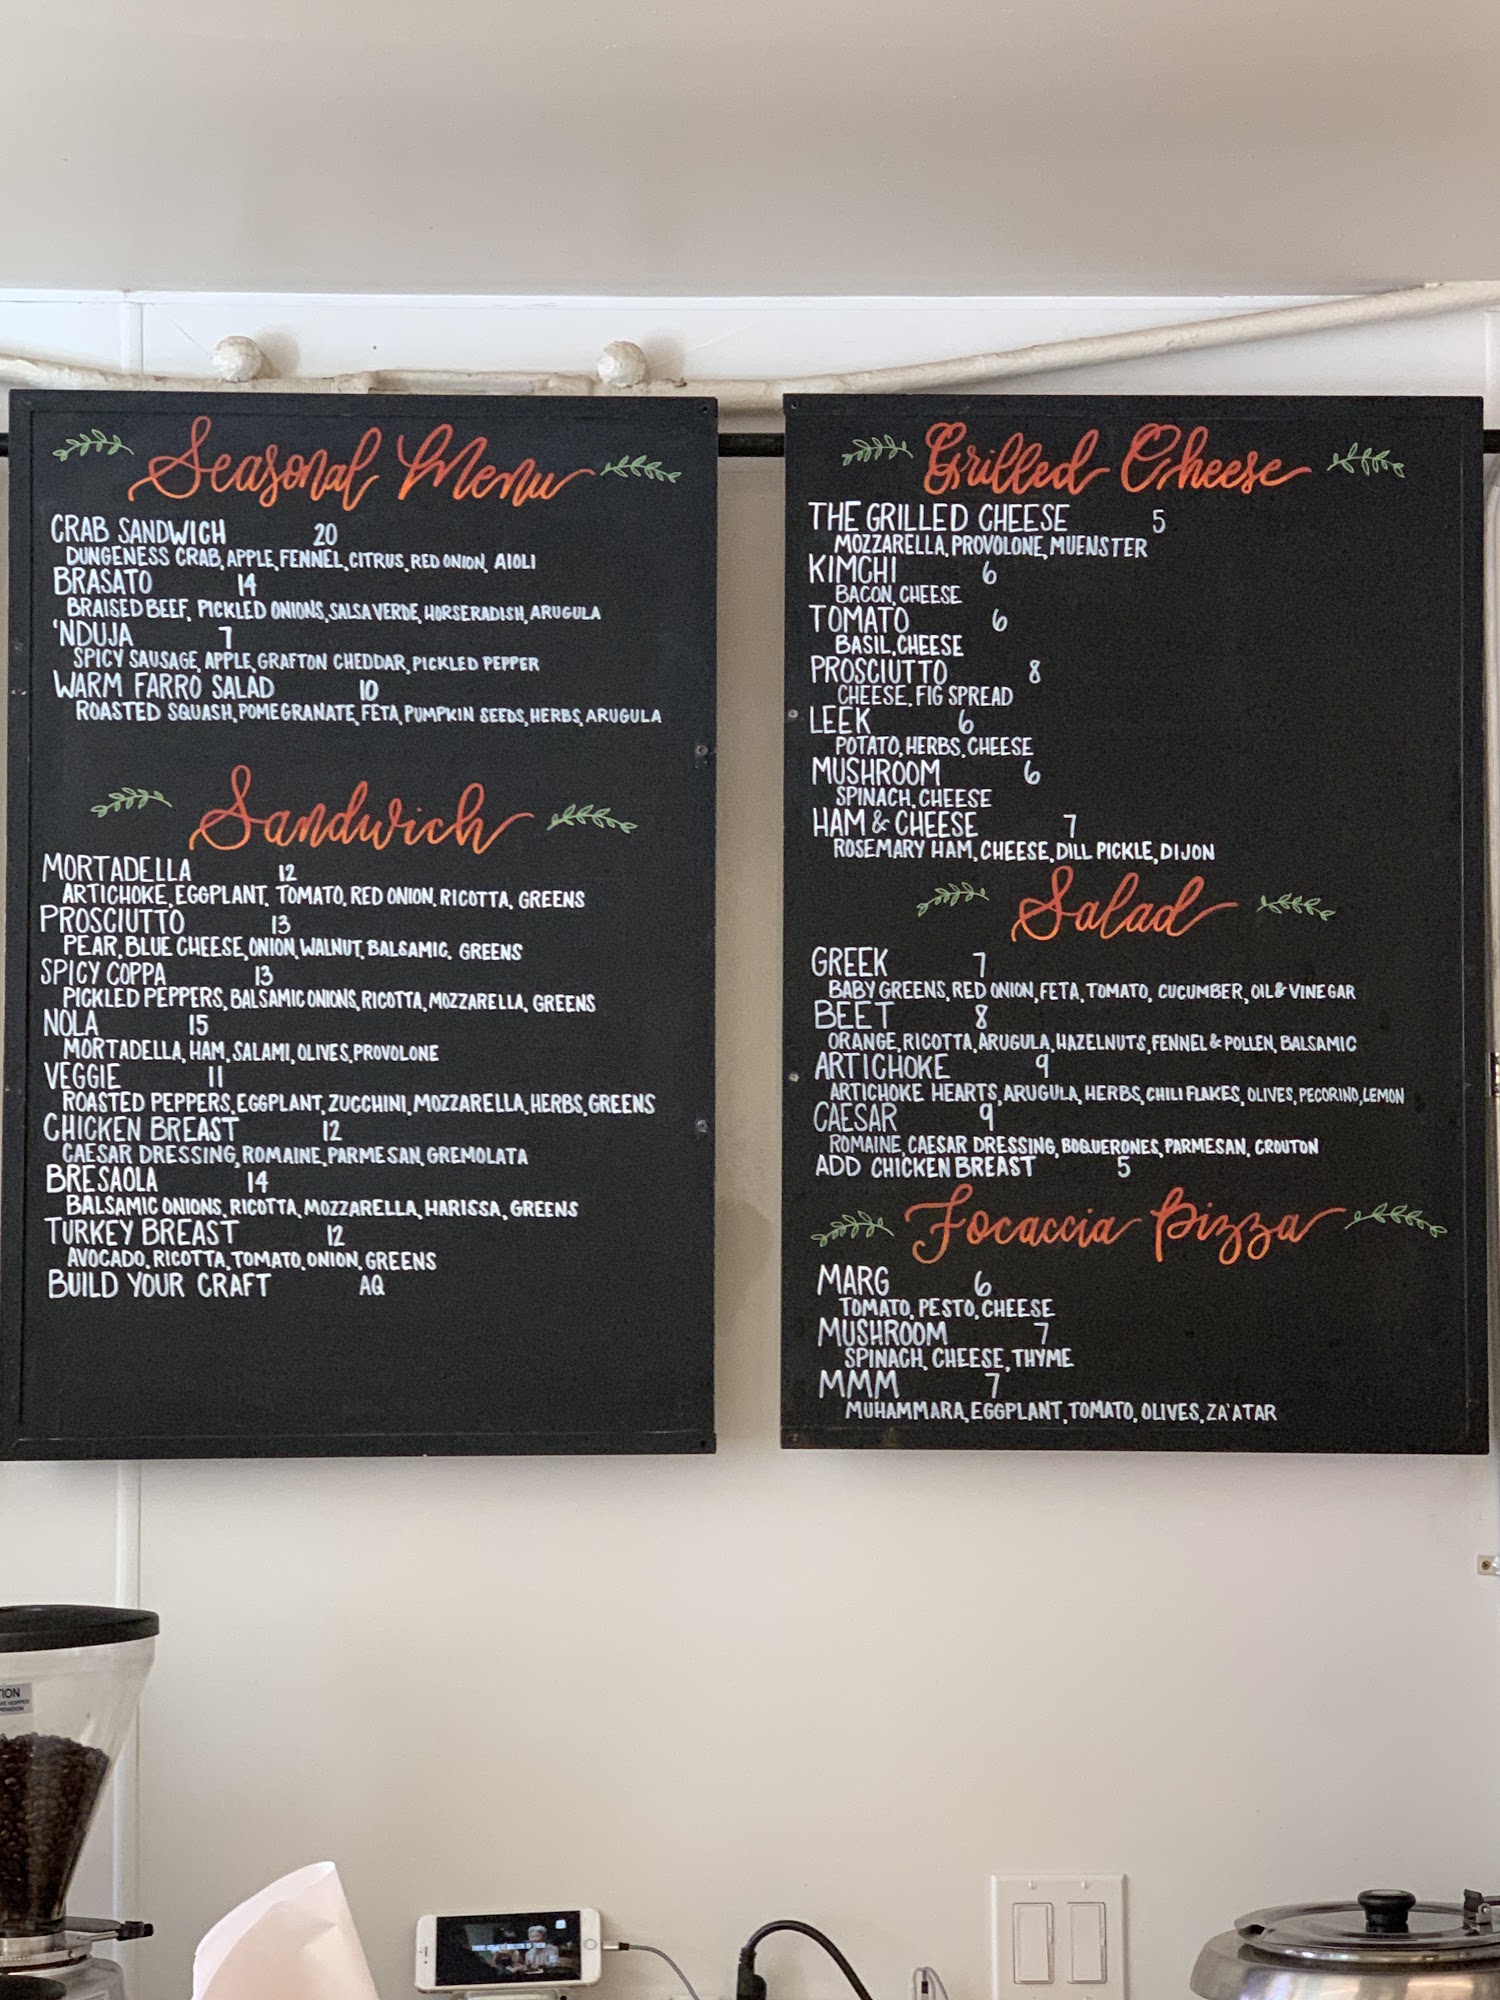 Seasonal Menu
CRAB SANDWICH 20
DUNGENESS CRAB, APPLE, FENNEL, CITRUS, RED ONION, AIOLI
BRASATO 14
BRAISED BEEF, PICKLED ONIONS, SALSA VERDE, HORSERADISH, ARUGULA
'NDUJA 7
SPICY SAUSAGE, APPLE, GRAFTON CHEDDAR, PICKLED PEPPER
WARM FARRO SALAD 10
ROASTED SQUASH, POMEGRANATE, FETA, PUMPKIN SEEDS, HERBS, ARUGULA
Sandwich
MORTADELLA 12
ARTICHOKE, EGGPLANT, TOMATO, RED ONION, RICOTTA, GREENS
PROSCIUTTO 13
PEAR, BLUE CHEESE, ONION, WALNUT, BALSAMIC, GREENS
SPICY COPPA 13
PICKLED PEPPERS, BALSAMIC ONIONS, RICOTTA, MOZZARELLA, GREENS
NOLA 15
MORTADELLA, HAM, SALAMI, OLIVES, PROVOLONE
VEGGIE 11
ROASTED PEPPERS, EGGPLANT, ZUCCHINI, MOZZARELLA, HERBS, GREENS
CHICKEN BREAST 12
CAESAR DRESSING, ROMAINE, PARMESAN, GREMOLATA
BRESAOLA 14
BALSAMIC ONIONS, RICOTTA, MOZZARELLA, HARISSA, GREENS
TURKEY BREAST 12
AVOCADO, RICOTTA, TOMATO, ONION, GREENS
BUILD YOUR CRAFT AQ
Grilled Cheese
THE GRILLED CHEESE 5
MOZZARELLA, PROVOLONE, MUENSTER
KIMCHI 6
BACON, CHEESE
TOMATO 6
BASIL, CHEESE
PROSCIUTTO 8
CHEESE, FIG SPREAD
LEEK 6
POTATO, HERBS, CHEESE
MUSHROOM 6
SPINACH, CHEESE
HAM & CHEESE 7
ROSEMARY HAM, CHEESE, DILL PICKLE, DIJON
Salad
GREEK 7
BABY GREENS, RED ONION, FETA, TOMATO, CUCUMBER, OIL & VINEGAR
BEET 8
ORANGE, RICOTTA, ARUGULA, HAZELNUTS, FENNEL & POLLEN, BALSAMIC
ARTICHOKE 9
ARTICHOKE HEARTS, ARUGULA, HERBS, CHILI FLAKES, OLIVES, PECORINO, LEMON
CAESAR 9
ROMAINE, CAESAR DRESSING, BOQUERONES, PARMESAN, CROUTON
ADD CHICKEN BREAST 5
Focaccia Pizza
MARG 6
TOMATO, PESTO, CHEESE
MUSHROOM 7
SPINACH, CHEESE, THYME
MMM 7
MUHAMMARA, EGGPLANT, TOMATO, OLIVES, ZA'ATAR